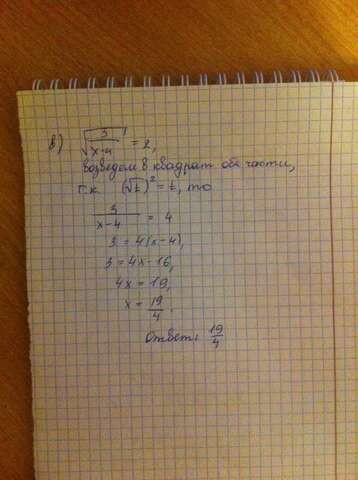 в) √(3/(x-4)) = 2,
возведем в квадрат обе части,
т.к (√t)² = t, то
3/(x-4) = 4
3 = 4(x-4),
3 = 4x-16,
4x = 19,
x = 19/4.
Ответ: 19/4